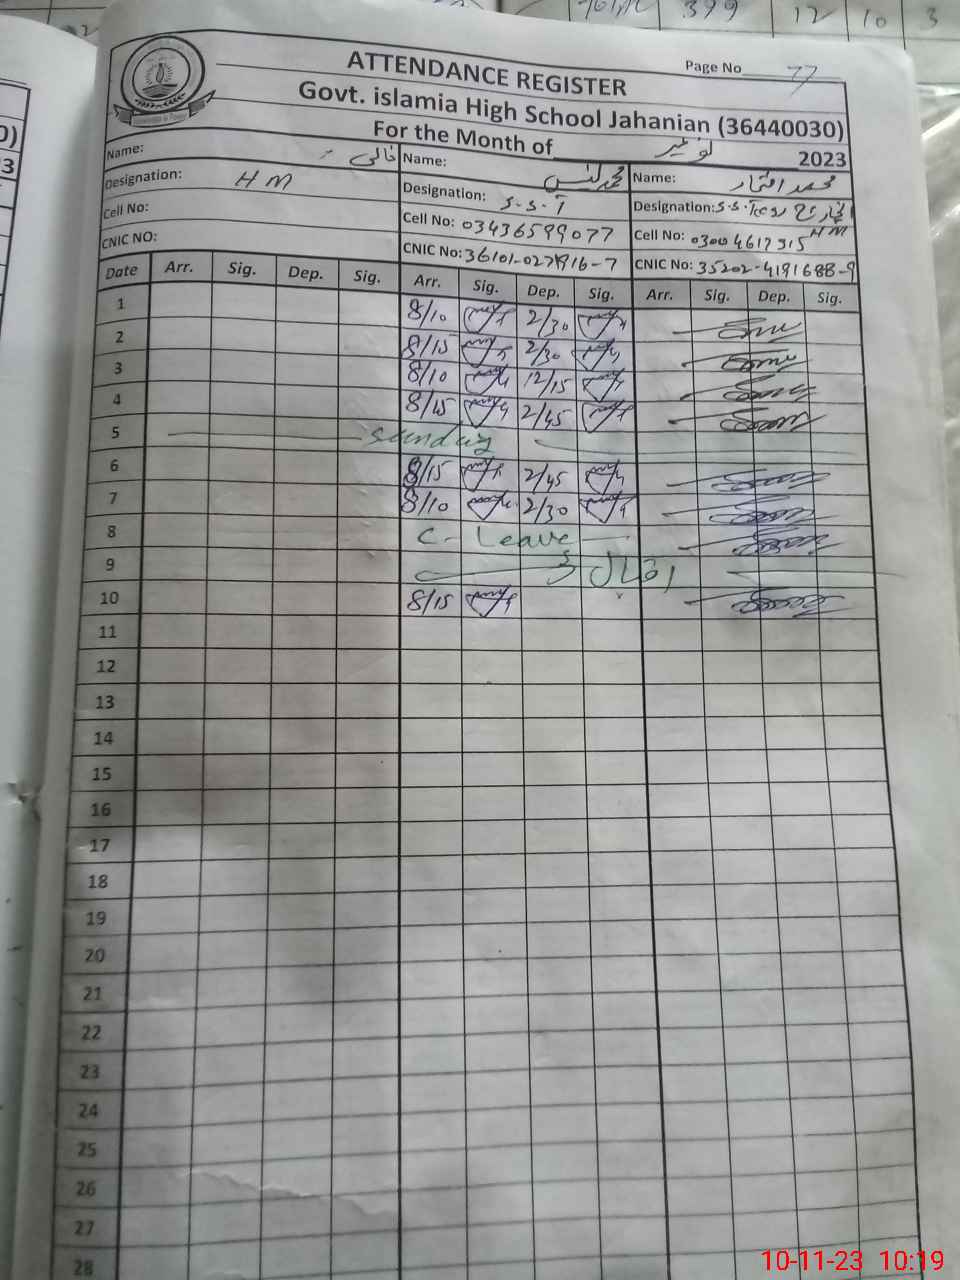 Total 399 12 10 3
ATTENDANCE REGISTER
Page No 77
Govt. islamia High School Jahanian (36440030)
For the Month of نومبر 2023
Name: خالی
Designation: H M
Cell No:
CNIC NO:
Name: محمد
Designation: S.S.T
Cell No: 03436599077
CNIC No: 36101-0271916-7
Name: محمد افتخار
Designation: S.S.T انچارج HM
Cell No: 0300 4617315
CNIC No: 35202-4191688-9
Date Arr. Sig. Dep. Sig. Arr. Sig. Dep. Sig. Arr. Sig. Dep. Sig.
1 8/10 2/30
2 8/15 2/30
3 8/10 12/15
4 8/15 2/45
5 Sunday
6 8/15 2/45
7 8/10 2/30
8 C. Leave
9 اقبال
10 8/15
11
12
13
14
15
16
17
18
19
20
21
22
23
24
25
26
27
28
10-11-23 10:19